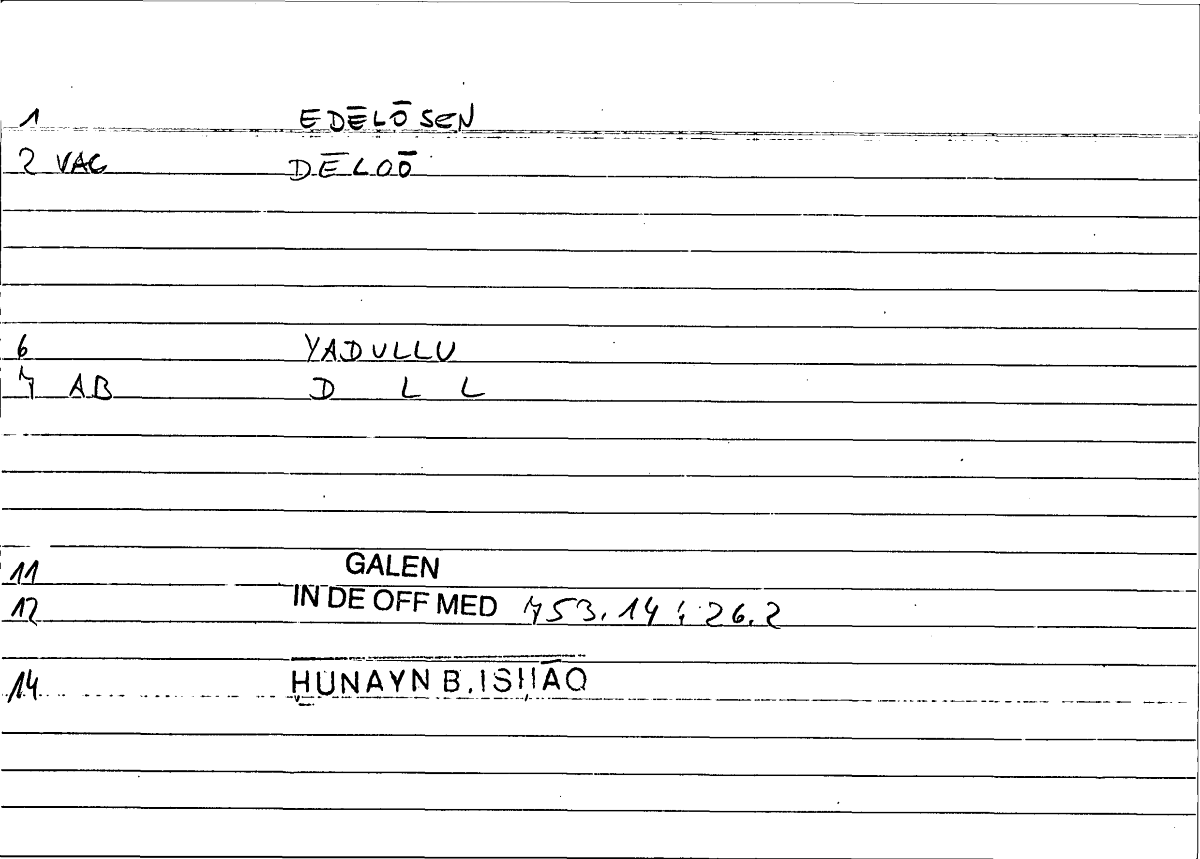 1 EDĒLŌSEN
2 VAC DĒLOŌ
6 YADULLU
7 AB D L L
11 GALEN
12 IN DE OFF MED 753.14 ; 26.2
14 ḤUNAYN B. ISḤĀQ